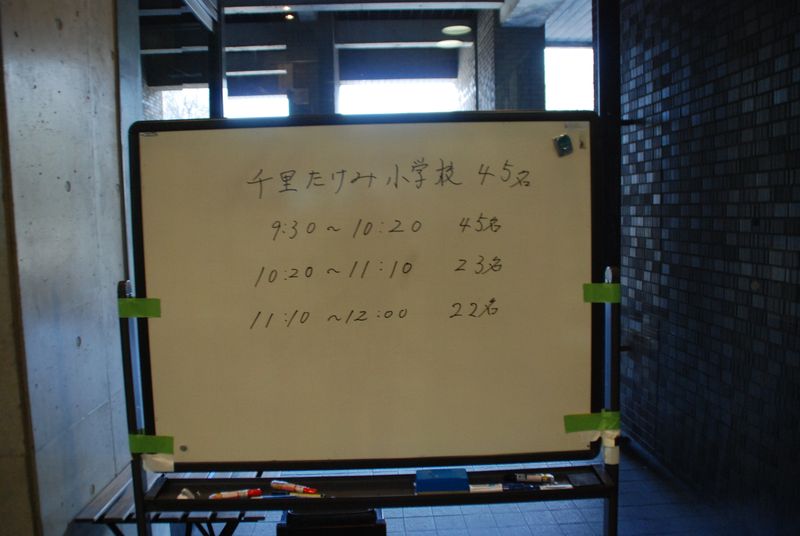 千里たけみ小学校 45名
9:30～10:20 45名
10:20～11:10 23名
11:10～12:00 22名